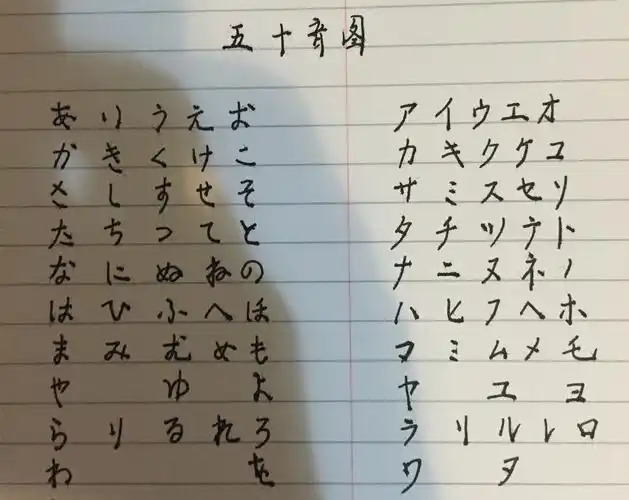 五十音图
あいうえお アイウエオ
かきくけこ カキクケコ
さしすせそ サミスセソ
たちつてと タチツテト
なにぬねの ナニヌネノ
はひふへほ ハヒフヘホ
まみむめも マミムメモ
やゆよ ヤユヨ
らりるれろ ラリルレロ
わを ワヌ